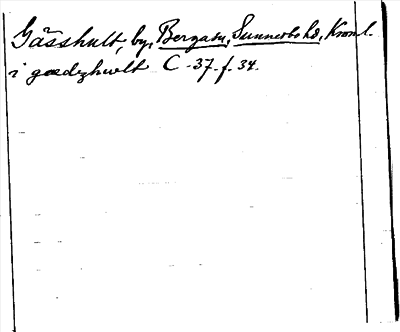 Gässhult, by, Bergasu, Sunnerbo hd, Kronl.
i gædzhwlt C-37-f. 34.